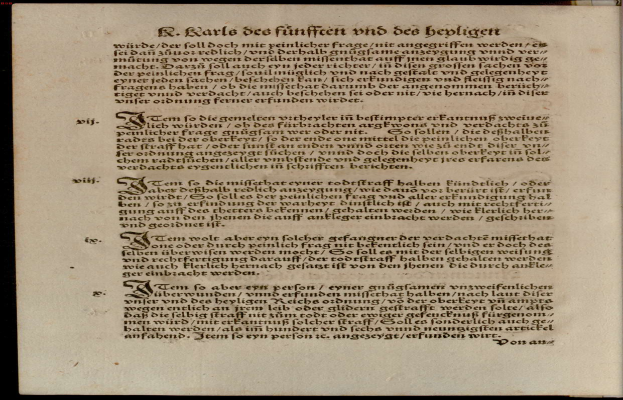 K. Karls des fünfften vnd des heyligen
würde / der soll doch mit peinlicher frage / nit angegriffen werden / es
sei dañ zuuor redlich / vnd derhalb gnügsame anzeygung vnnd ver=
mütung von wegen derselben missenthat auff jnen glaubwirdig ge=
macht. Darzü soll auch eyn jeder richter / in disen grossen sachen vor
der peinlichen frag / souil müglich vnd nach gestalt vnd gelegenheyt
eyner jeden sachen / beschehen kan / sich erkundigen vnd fleissig nach=
fragens haben / ob die missethat darumb der angenommen berüch=
tiget vnnd verdacht / auch beschehen sei oder nit / wie hernach / in diser
vnser ordnung ferner erfunden wirdet.
vij. ITem so die gemelten vrtheyler in bestimpter erkantnuß zweiue=
lich würden / ob des fürbrachten argkwons vnd verdachts zü
peinlicher frage gnügsam wer oder nit. So sollen / die deßhalben
radts bei der oberkeyt / so der ende one mittel die peinlichen oberkeyt
der straff hat / oder sunst an enden vnnd orten wie zü ende diser vn=
ser ordnung angezeygt süchen / vnnd doch die selben oberkeyt in sol=
chem radtsüchen / aller vmbstende vnd gelegenheyt jres erfarens des
verdachts eygentlichen in schrifften berichten.
viij. ITem so die missethat eyner todtstraff halben kündelich / oder
aber deßhalb redlich anzeygung / wie dauon vor berürt ist / erfun
den wirdt / So soll es der peinlichen frag vnd aller erkundigung hal
ben / so zü erfindung der warheyt dinstlich ist / auch mit rechtferti=
gung auff des thetters bekennen / gehalten werden / wie klerlich her=
nach von den jhenen die auff ankleger einbracht werden / geschriben
vnd geordnet ist.
ix. ITem wolt aber eyn solcher gefangner der verdachtē missethat
one oder durch peinlich frag nit bekentlich sein / vnd er doch des
selben überwisen werden mocht / So soll es mit der selbigen weisung
vnd rechtfertigung darauff / der todtstraff halben gehalten werden
wie auch klerlich hernach gesatzt ist von den jhenen die durch ankle=
ger einbracht werden.
x. ITem so aber eyn person / eyner gnügsamen vnzweifenlichen
überwunden / vnnd erfunden missethat halben / nach laut diser
vnser vnd des heyligen Reichs ordnung / võ der oberkeyt vñ ampts
wegen entlich an jrem leib oder glidern gestrafft werden solte / also
daß die selbig straff nit züm todt oder ewiger gefencknuß fürgenom=
men würd / mit erkantnuß solcher straff / Soll es sonderlich auch ge=
halten werden / als im hundert vnd sechs vnnd neuntzigsten artickel
anfahend. Item so eyn person ꝛc. angezeygt / erfunden wirt.
Von an=